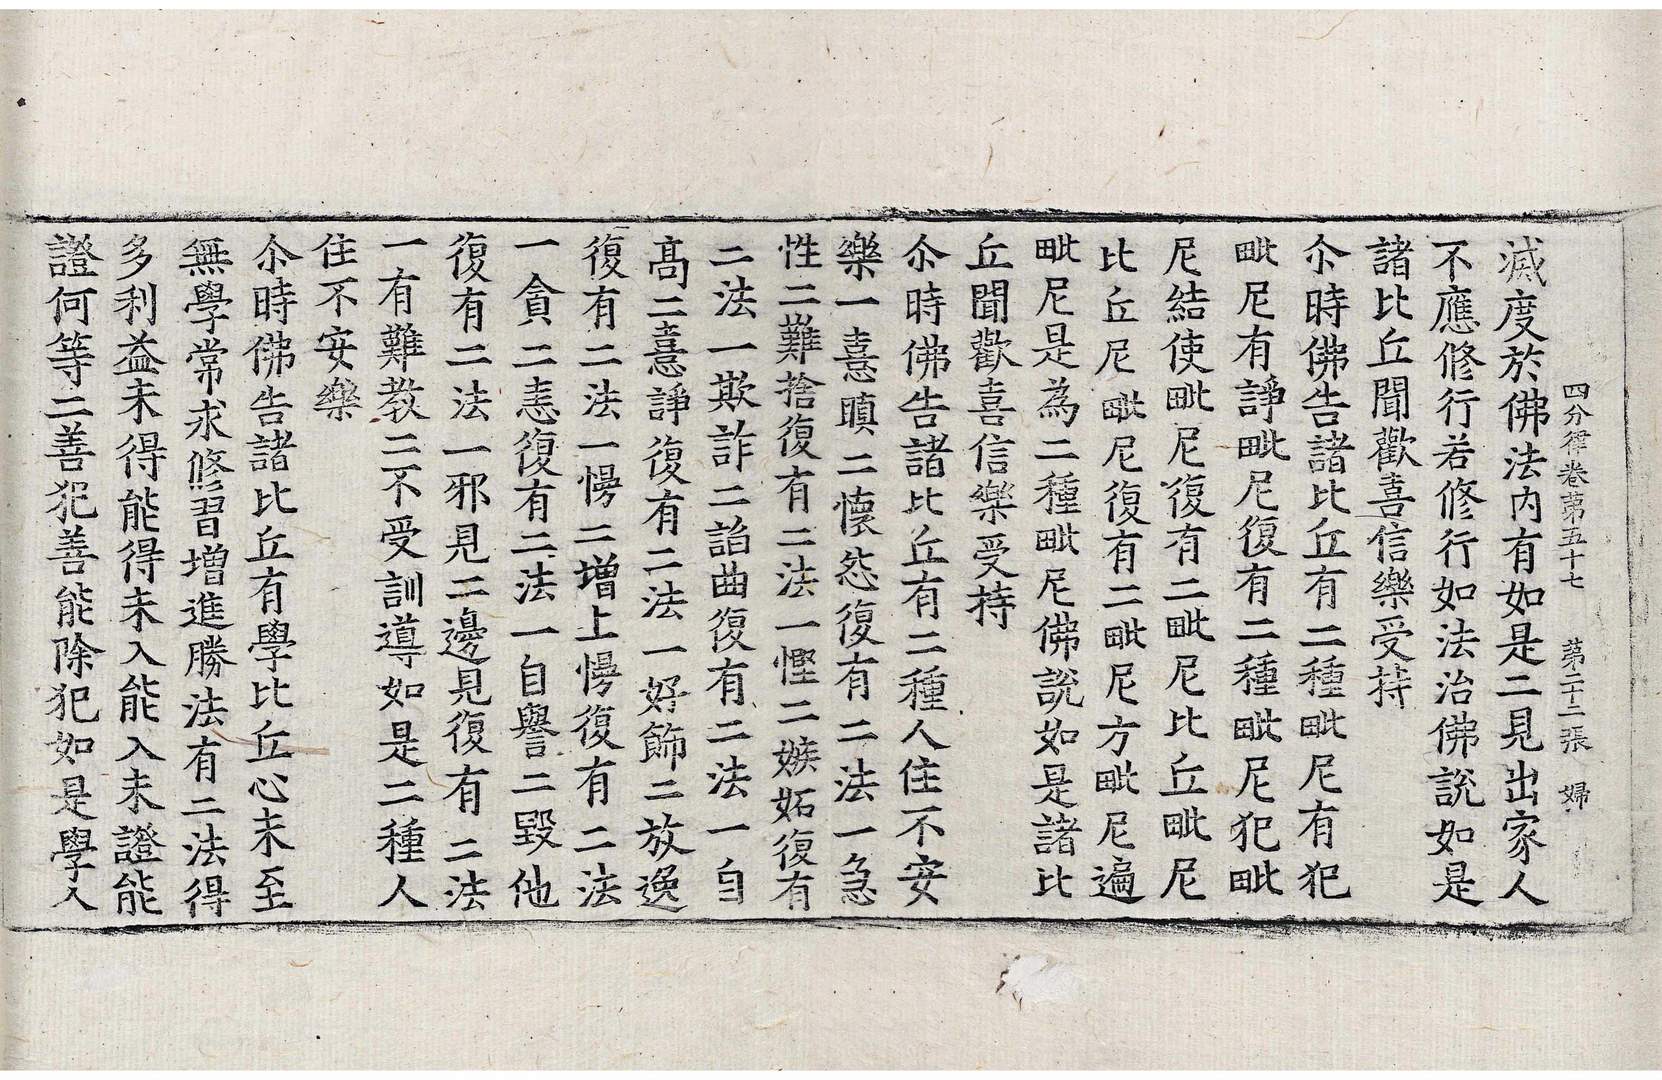 四分律卷苐五十七　苐二十二張　婦
滅度於佛法内有如是二見出家人
不應修行若修行如法治佛說如是
諸比丘聞歡喜信樂受持
尒時佛告諸比丘有二種毗尼有犯
毗尼有諍毗尼復有二種毗尼犯毗
尼結使毗尼復有二毗尼比丘毗尼
比丘尼毗尼復有二毗尼方毗尼遍
毗尼是為二種毗尼佛說如是諸比
丘聞歡喜信樂受持
尒時佛告諸比丘有二種人住不安
樂一憙瞋二懷怨復有二法一急
性二難捨復有二法一慳二嫉妬復有
二法一欺詐二諂曲復有二法一自
高二憙諍復有二法一好飾二放逸
復有二法一慢二增上慢復有二法
一貪二恚復有二法一自譽二毀他
復有二法一邪見二邊見復有二法
一有難教二不受訓導如是二種人
住不安樂
尒時佛告諸比丘有學比丘心未至
無學常求修習增進勝法有二法得
多利益未得能得未入能入未證能
證何等二善犯善能除犯如是學人